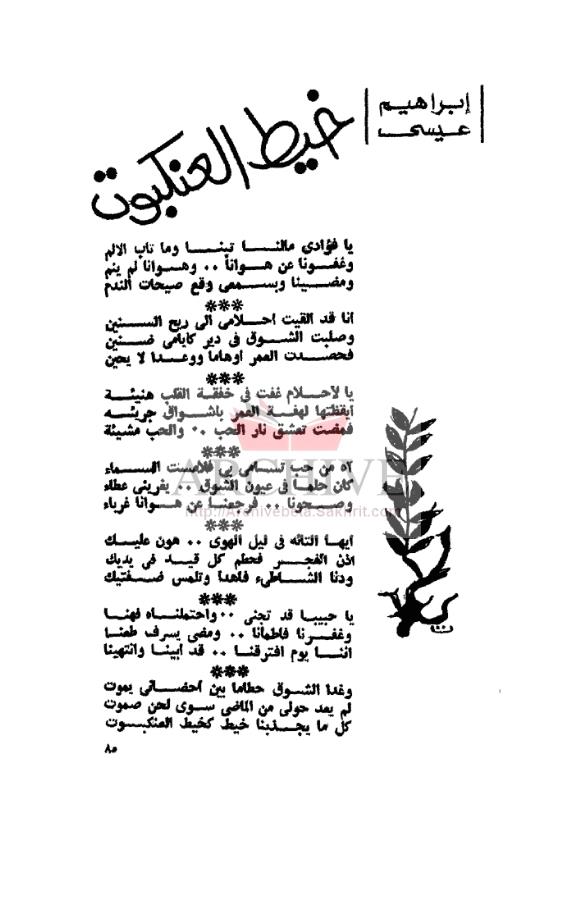 إبراهيم
عيسى
خيط العنكبوت
يا فؤادي مالنا تبنا وما تاب الالم
وغفونا عن هوانا .. وهوانا لم ينم
ومضينا وبسمعى وقع صيحات الندم
***
انا قد القيت احلامى الى ريح السنين
وصلبت الشوق فى دير كايامى ضنين
فحصدت العمر اوهاما ووعدا لا يحين
***
يا لاحلام غفت فى خفقة القلب هنيئة
ايقظتها لهفة العمر باشواق جريئه
فمضت تعشق نار الحب .. والحب مشيئة
***
آه من حب تسامى بى فلامست السماء
كان حلما فى عيون الشوق .. يغرينى عطاء
وصحونا .. فرجعنا عن هوانا غرباء
***
ايها التائه فى ليل الهوى .. هون عليك
اذن الفجر فحطم كل قيد فى يديك
ودنا الشاطىء فاهدأ وتلمس ضفتيك
***
يا حبيبا قد تجنى .. واحتملناه فهنا
وغفرنا فاطمأنا .. ومضى يسرف طعنا
اننا يوم افترقنا .. قد ابينا وانتهينا
***
وغدا الشوق حطاما بين أحضانى يموت
لم يعد حولى من الماضى سوى لحن صموت
كل ما يجذبنا خيط كخيط العنكبوت
٨٥
ARCHIVE
http://Archivebeta.Sakhrit.com